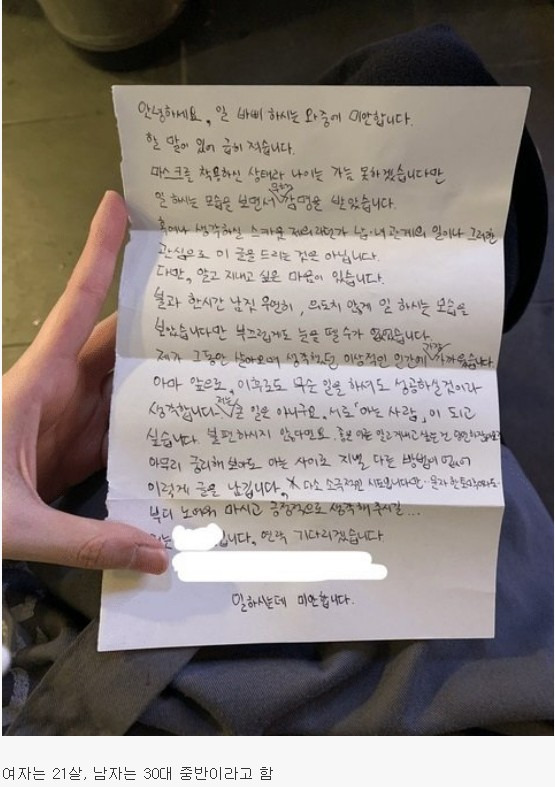 안녕하세요, 일 바삐 하시는 와중에 미안합니다.
할 말이 있어 급히 적습니다.
마스크를 착용하신 상태라 나이는 가늠 못하겠습니다만
일 하시는 모습을 보면서 무척 감명을 받았습니다.
혹여나 생각하실 스카웃 제의라던가 남·녀 관계의 일이나 그러한
관심으로 이 글을 드리는 것은 아닙니다.
다만, 알고 지내고 싶은 마음이 있습니다.
불과 한시간 남짓 우연히, 의도치 않게 일 하시는 모습을
보았습니다만 부끄럽게도 눈을 뗄 수가 없었습니다.
제가 그동안 살아오며 생각했던 이상적인 인간에 가장 가까웠습니다.
아마 앞으로, 이후로도 무슨 일을 하셔도 성공하실 것이라
생각합니다. 저는 일은 아니구요, 서로 「아는 사람」이 되고
싶습니다. 불편하시지 않다면요.
아무리 궁리해 보아도 아는 사이로 지낼 다른 방법이 없어
이렇게 글을 남깁니다, 다소 소극적인 시도입니다만
부디 노여워 마시고 긍정적으로 생각해 주시길...
저는 입니다, 연락 기다리겠습니다
일하시는데 미안합니다.
여자는 21살, 남자는 30대 중반이라고 함